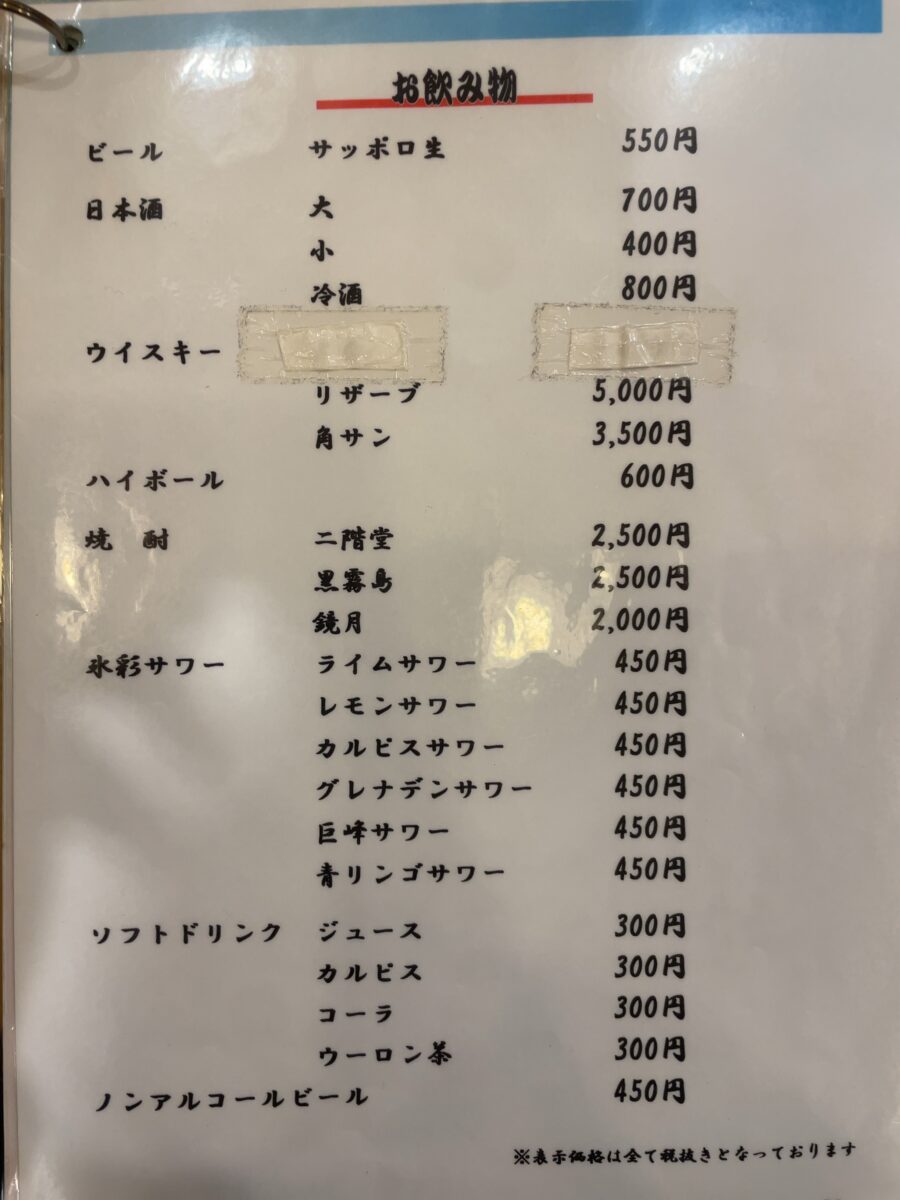 お飲み物
ビール サッポロ生 550円
日本酒 大 700円
小 400円
冷酒 800円
ウイスキー
リザーブ 5,000円
角サン 3,500円
ハイボール 600円
焼 酎 二階堂 2,500円
黒霧島 2,500円
鏡月 2,000円
氷彩サワー ライムサワー 450円
レモンサワー 450円
カルピスサワー 450円
グレナデンサワー 450円
巨峰サワー 450円
青リンゴサワー 450円
ソフトドリンク ジュース 300円
カルピス 300円
コーラ 300円
ウーロン茶 300円
ノンアルコールビール 450円
※表示価格は全て税抜きとなっております